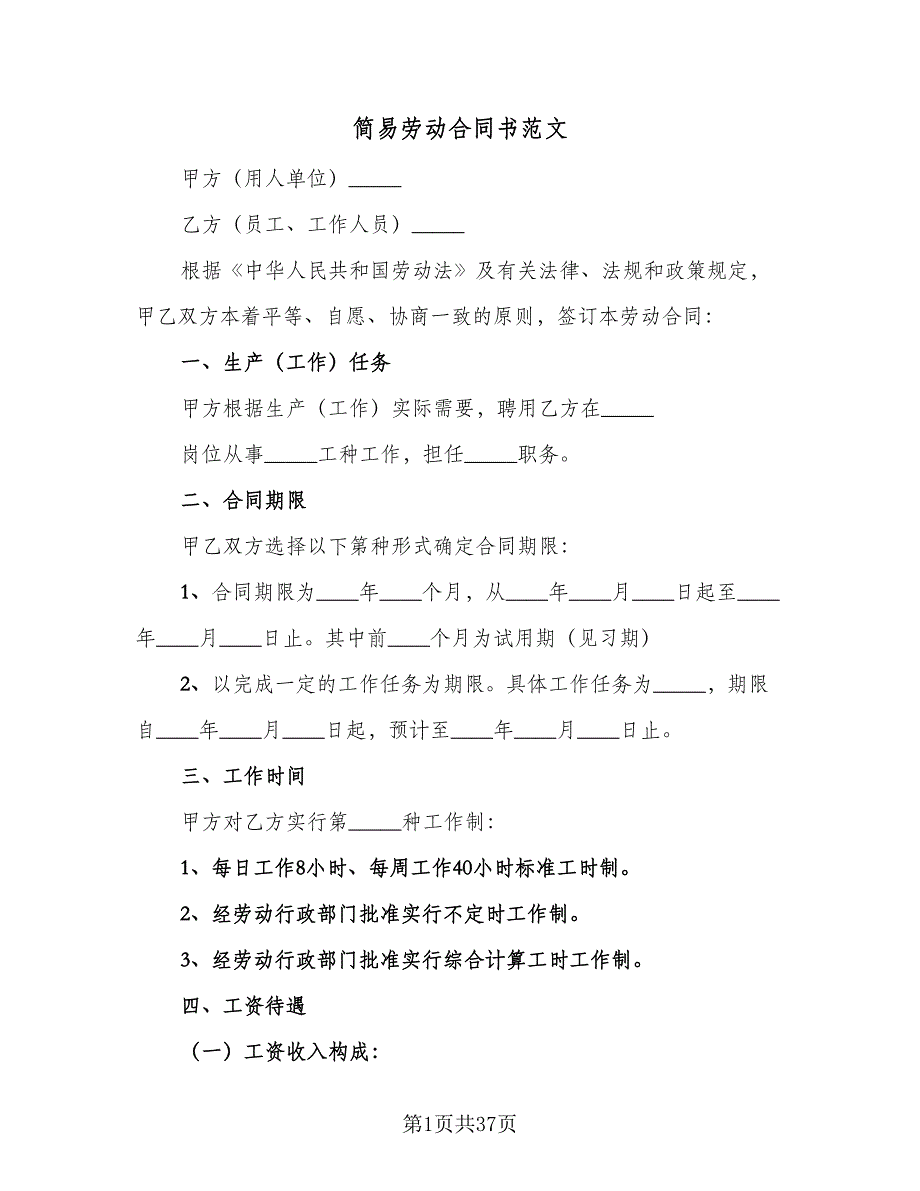 简易劳动合同书范文
甲方（用人单位）_____
乙方（员工、工作人员）_____
根据《中华人民共和国劳动法》及有关法律、法规和政策规定，
甲乙双方本着平等、自愿、协商一致的原则，签订本劳动合同：
一、生产（工作）任务
甲方根据生产（工作）实际需要，聘用乙方在_____
岗位从事_____工种工作，担任_____职务。
二、合同期限
甲乙双方选择以下第种形式确定合同期限：
1、合同期限为____年____个月，从____年____月____日起至____
年____月____日止。其中前____个月为试用期（见习期）
2、以完成一定的工作任务为期限。具体工作任务为_____，期限
自____年____月____日起，预计至____年____月____日止。
三、工作时间
甲方对乙方实行第_____种工作制：
1、每日工作8小时、每周工作40小时标准工时制。
2、经劳动行政部门批准实行不定时工作制。
3、经劳动行政部门批准实行综合计算工时工作制。
四、工资待遇
（一）工资收入构成：
第1页共37页